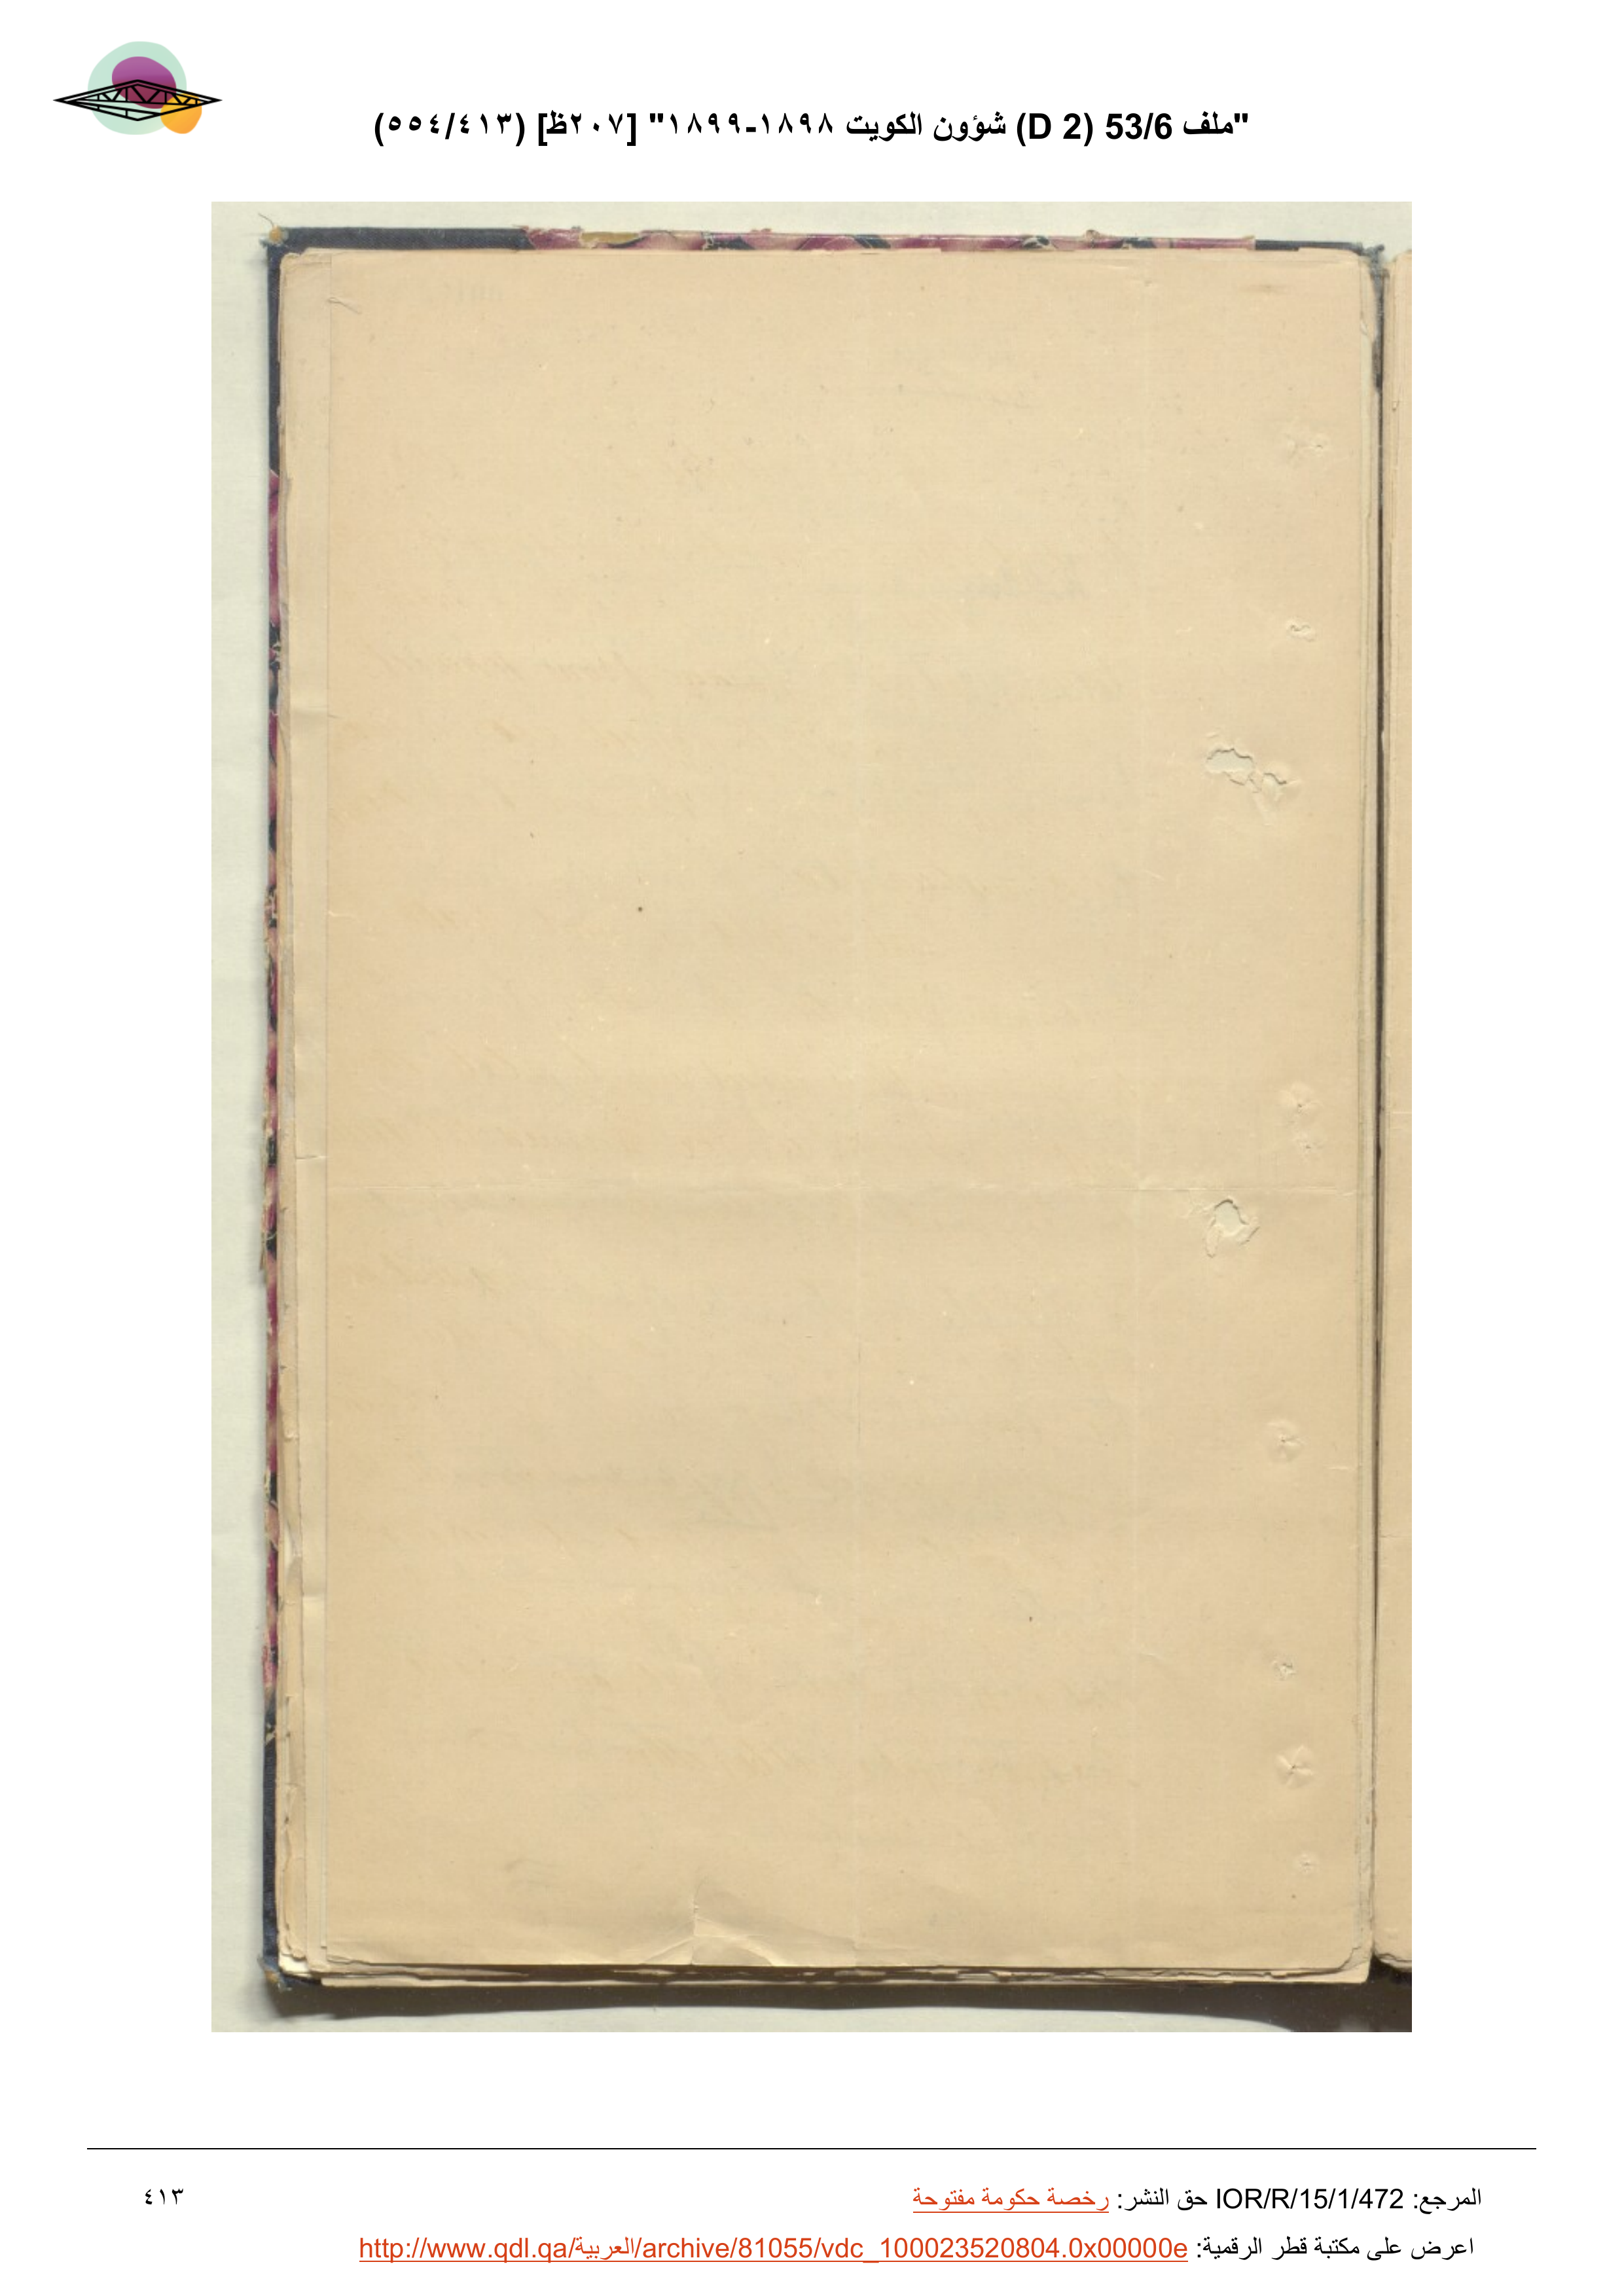 "ملف 53/6 (D 2) شؤون الكويت ١٨٩٨-١٨٩٩" [٢٠٧ظ] (٥٥٤/٤١٣)
المرجع: IOR/R/15/1/472 حق النشر: رخصة حكومة مفتوحة
٤١٣
اعرض على مكتبة قطر الرقمية: http://www.qdl.qa/العربية/archive/81055/vdc_100023520804.0x00000e